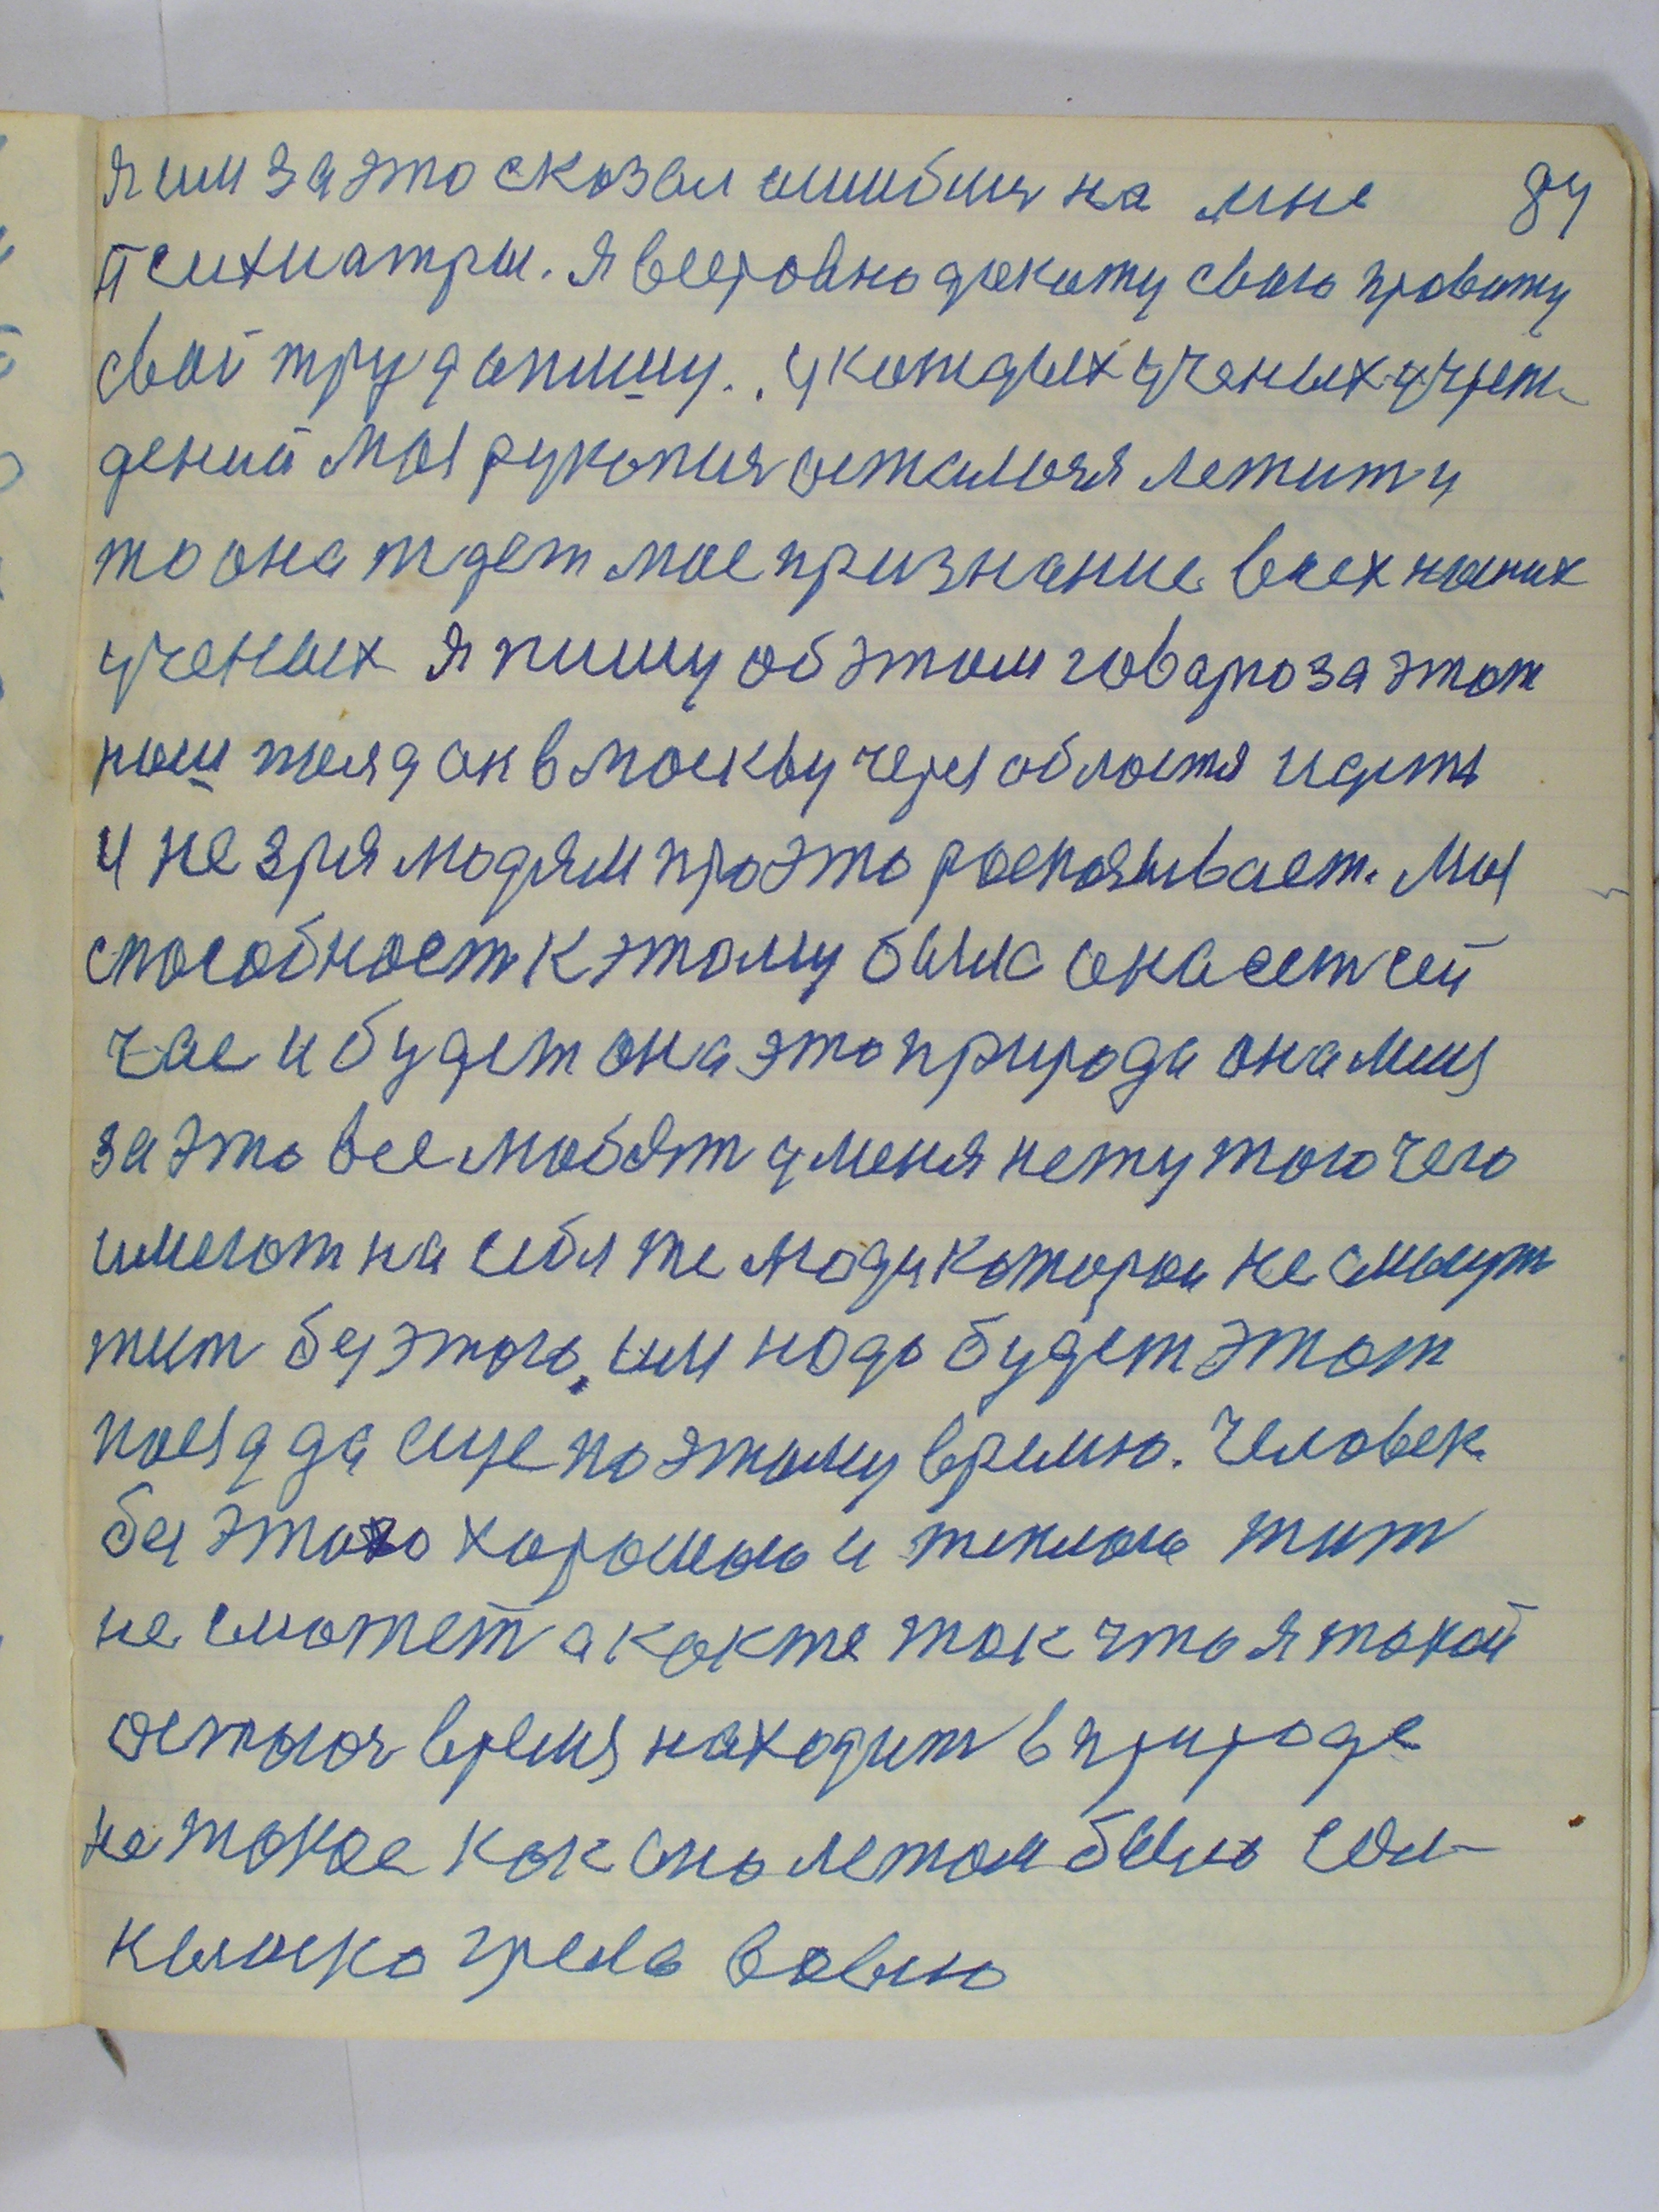 я им за это сказал ошиблис на мне 84
психиатры. Я всеровно докажу свою провжу
свой труд опишу. . у каждых ученых учреж-
дений моя рукопис осталося лежит у
то она ждет мое признание всех наших
ученых я пишу об этом говарю за этот
наш поязд он в москву через областя идеть
и не зря людям про это роспозывает. Моя
способност к этому была она ест сей
час и будет она это природа она мня
за это все любят у меня нету того чего
имеют на себя те люди каторои не смогут
жит без этого, им надо будет этот
поезд да еще по этому время. Человек
без этого хорошего и теплого жит
не сможет а как же так что я такой
остался время находит в природе
не такое как оно летом было сол-
нышко грело вовсю